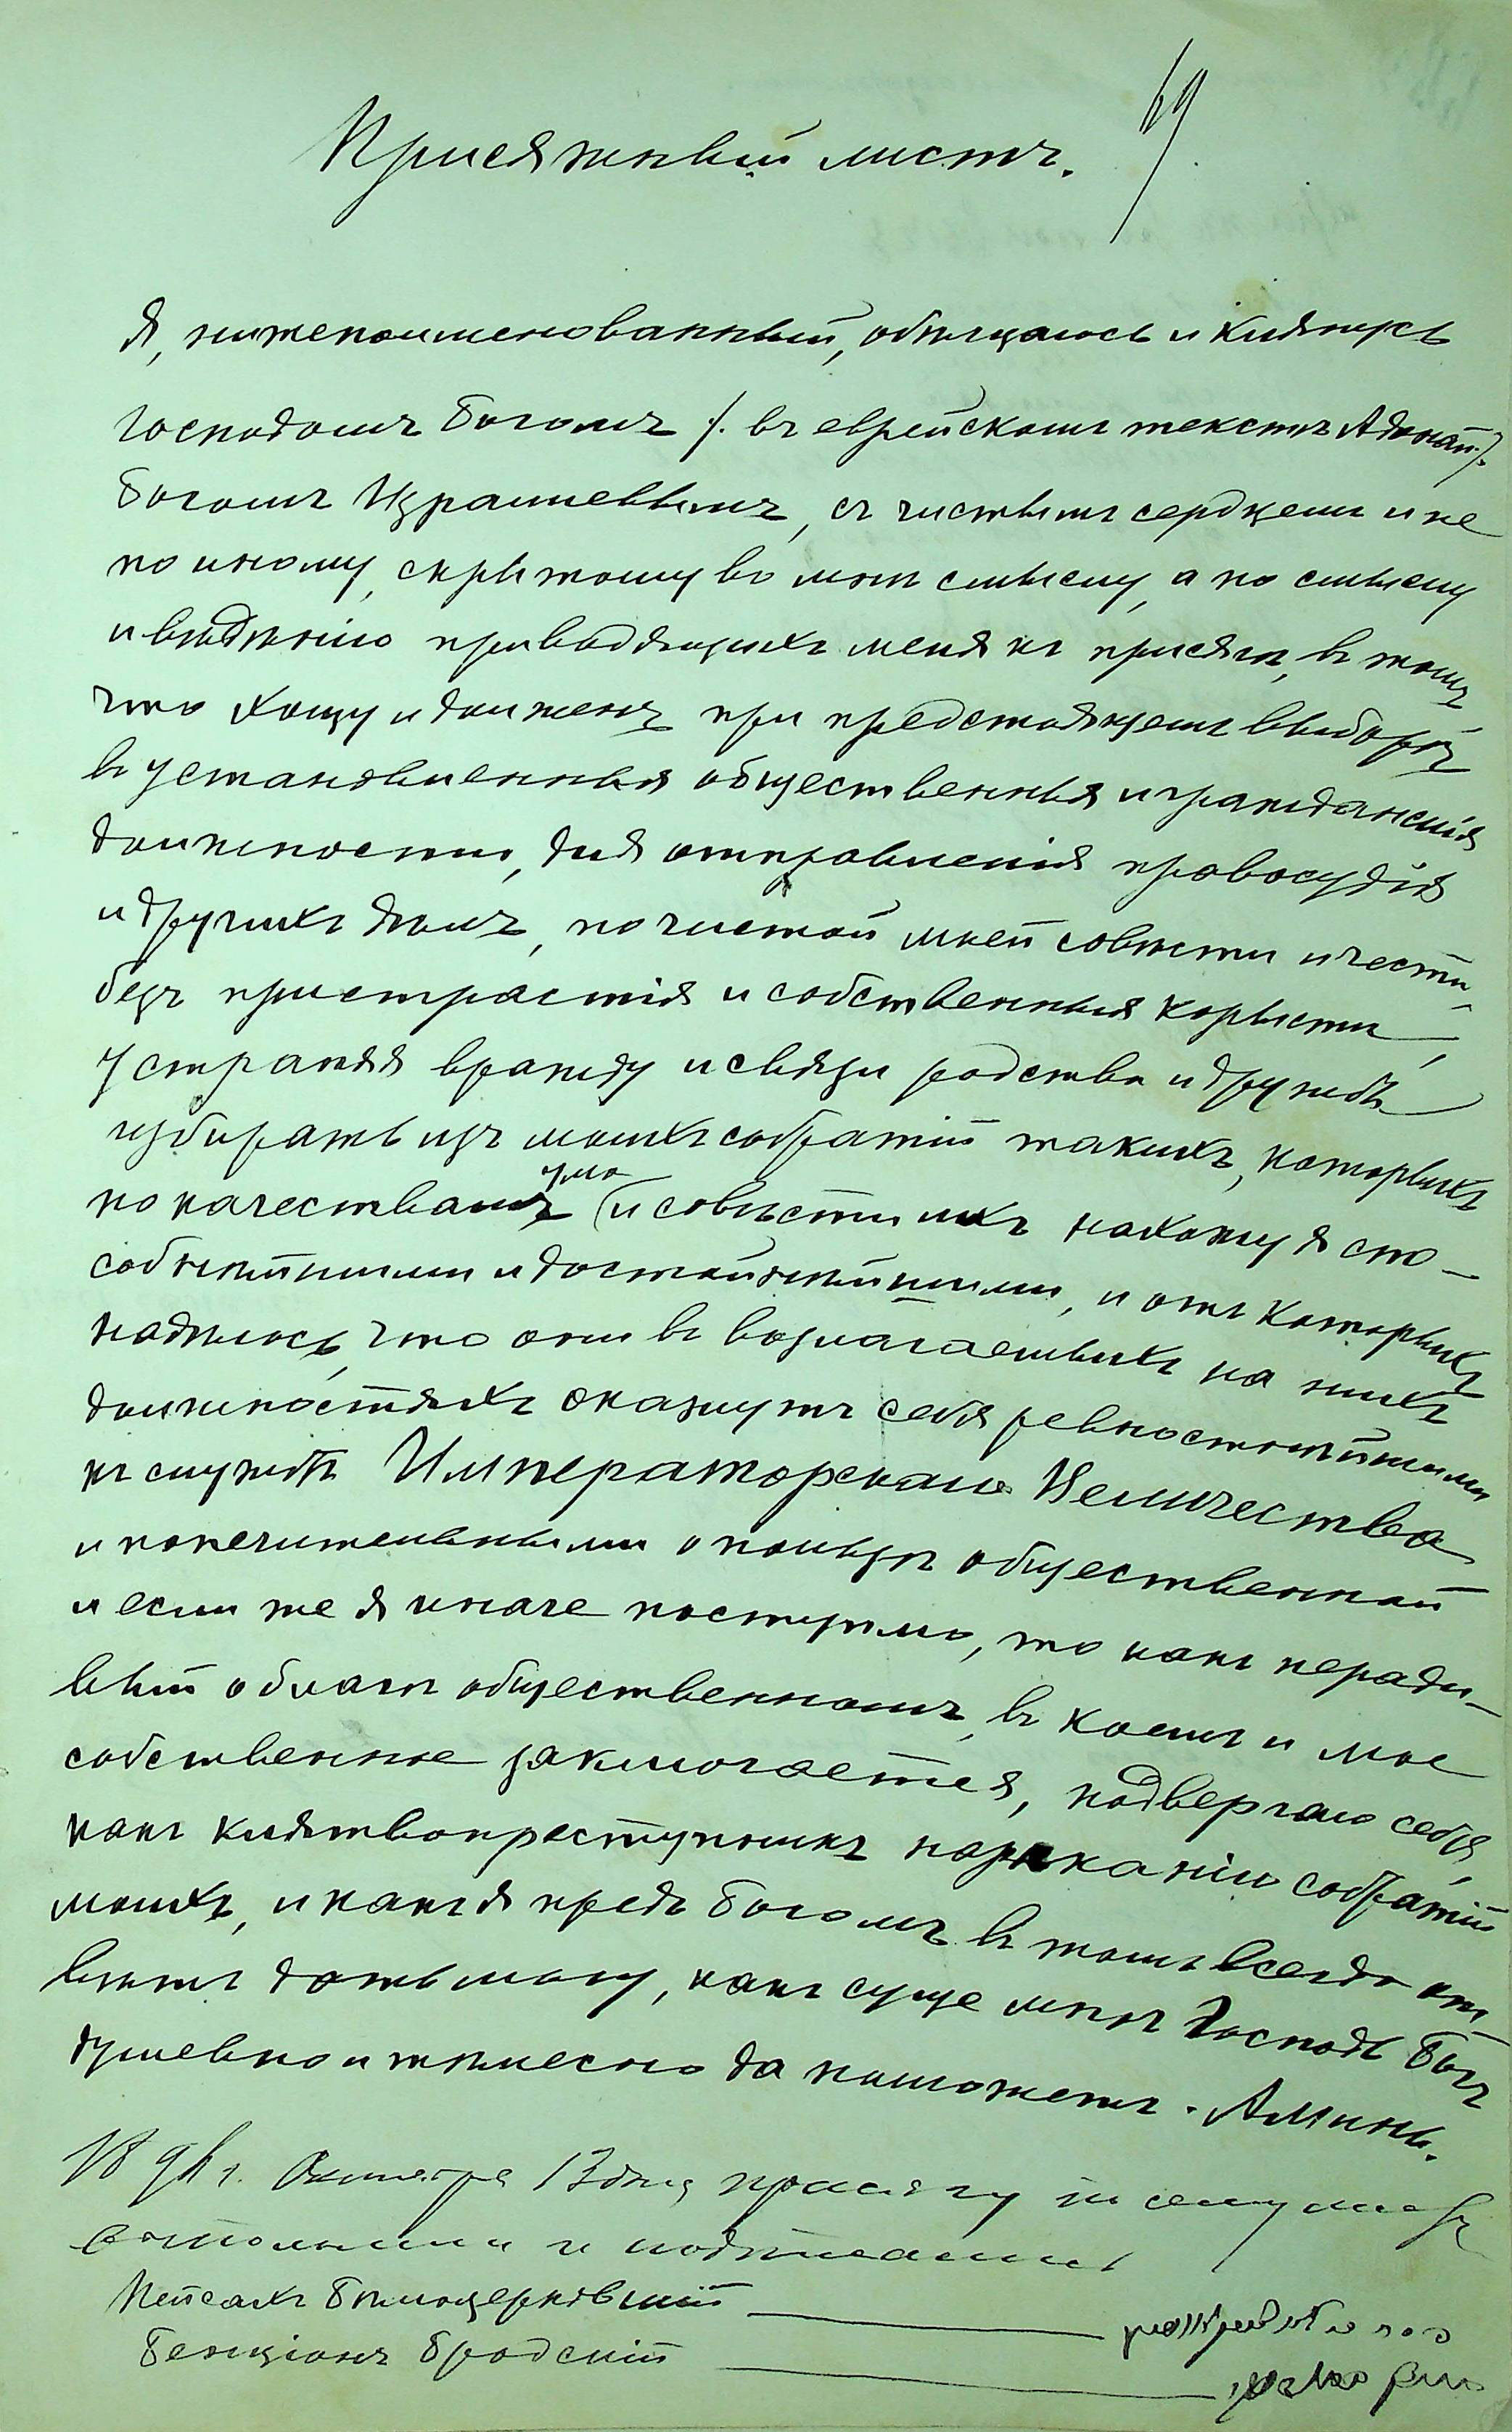 69
Присяжный листъ.
Я, нижепоименованный, обѣщаюсь и клянусь
Господомъ Богомъ /. въ еврейскомъ текстѣ Адонай ./.
Богомъ Израилевымъ, съ чистымъ сердцемъ и не
по иному, скрытому во мнѣ смыслу, а по смыслу
и вѣдѣнію приводящихъ меня къ присягѣ, въ томъ,
что хощу и долженъ при предстоящемъ выборѣ
въ установленныя общественныя и гражданскія
должности, для отправленія правосудія
и другихъ дѣлъ, по чистой моей совѣсти и чести,
безъ пристрастія и собственныя корысти,
устраняя вражду и связи родства и дружбы
избирать изъ моихъ собратій такихъ, которыхъ
по качествамъ ума и совѣсти ихъ нахожу я спо-
собнѣйшими и достойнѣйшими, и отъ которыхъ
надѣюсь, что они въ возлагаемыхъ на нихъ
должностяхъ окажутъ себя ревностнѣйшими
къ службѣ Императорскаго Величества
и попечительными о пользѣ общественной
и если же я иначе поступлю, то какъ неради-
вый о благѣ общественномъ, въ коемъ и мое
собственное заключается, подвергаю себя,
какъ клятвопреступникъ нареканію собратій
моихъ, и какъ я предъ Богомъ въ томъ всегда от-
вѣтъ дать могу, какъ суще мнѣ Господь Богъ
душевно и тѣлесно да поможетъ. Аминь.
189 г. Октября 13 дня присягу по сему листу
выполнили и подписались
Пейсахъ Бѣлоцерковскій
Бенціонъ Бродскій